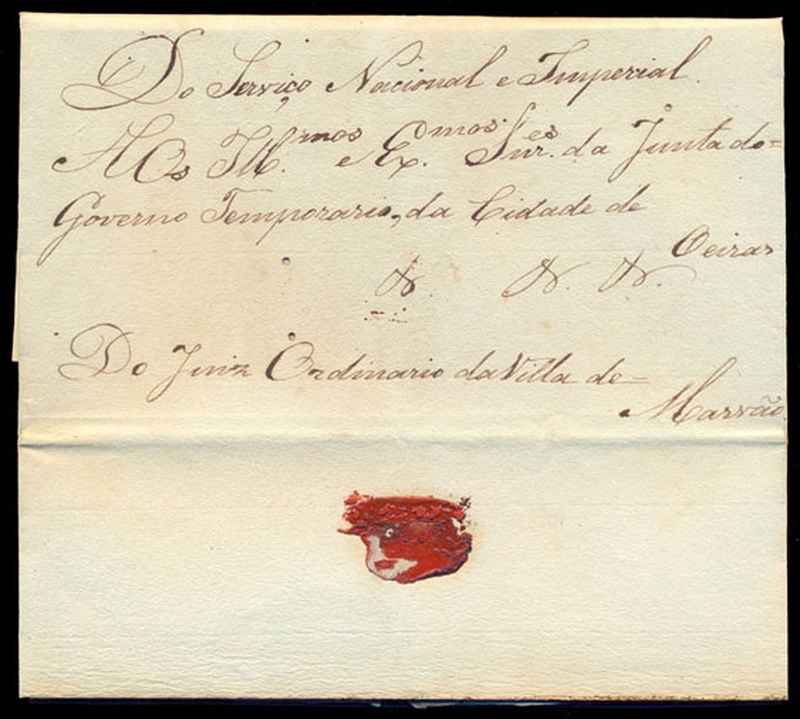 Do Serviço Nacional e Imperial.
AOs Ill.mos e Ex.mos Snr.es da Junta do=
Governo Temporario, da Cidade de
Oeiras
N. N. N.
Do Juiz Ordinario da Villa de=
Marvão